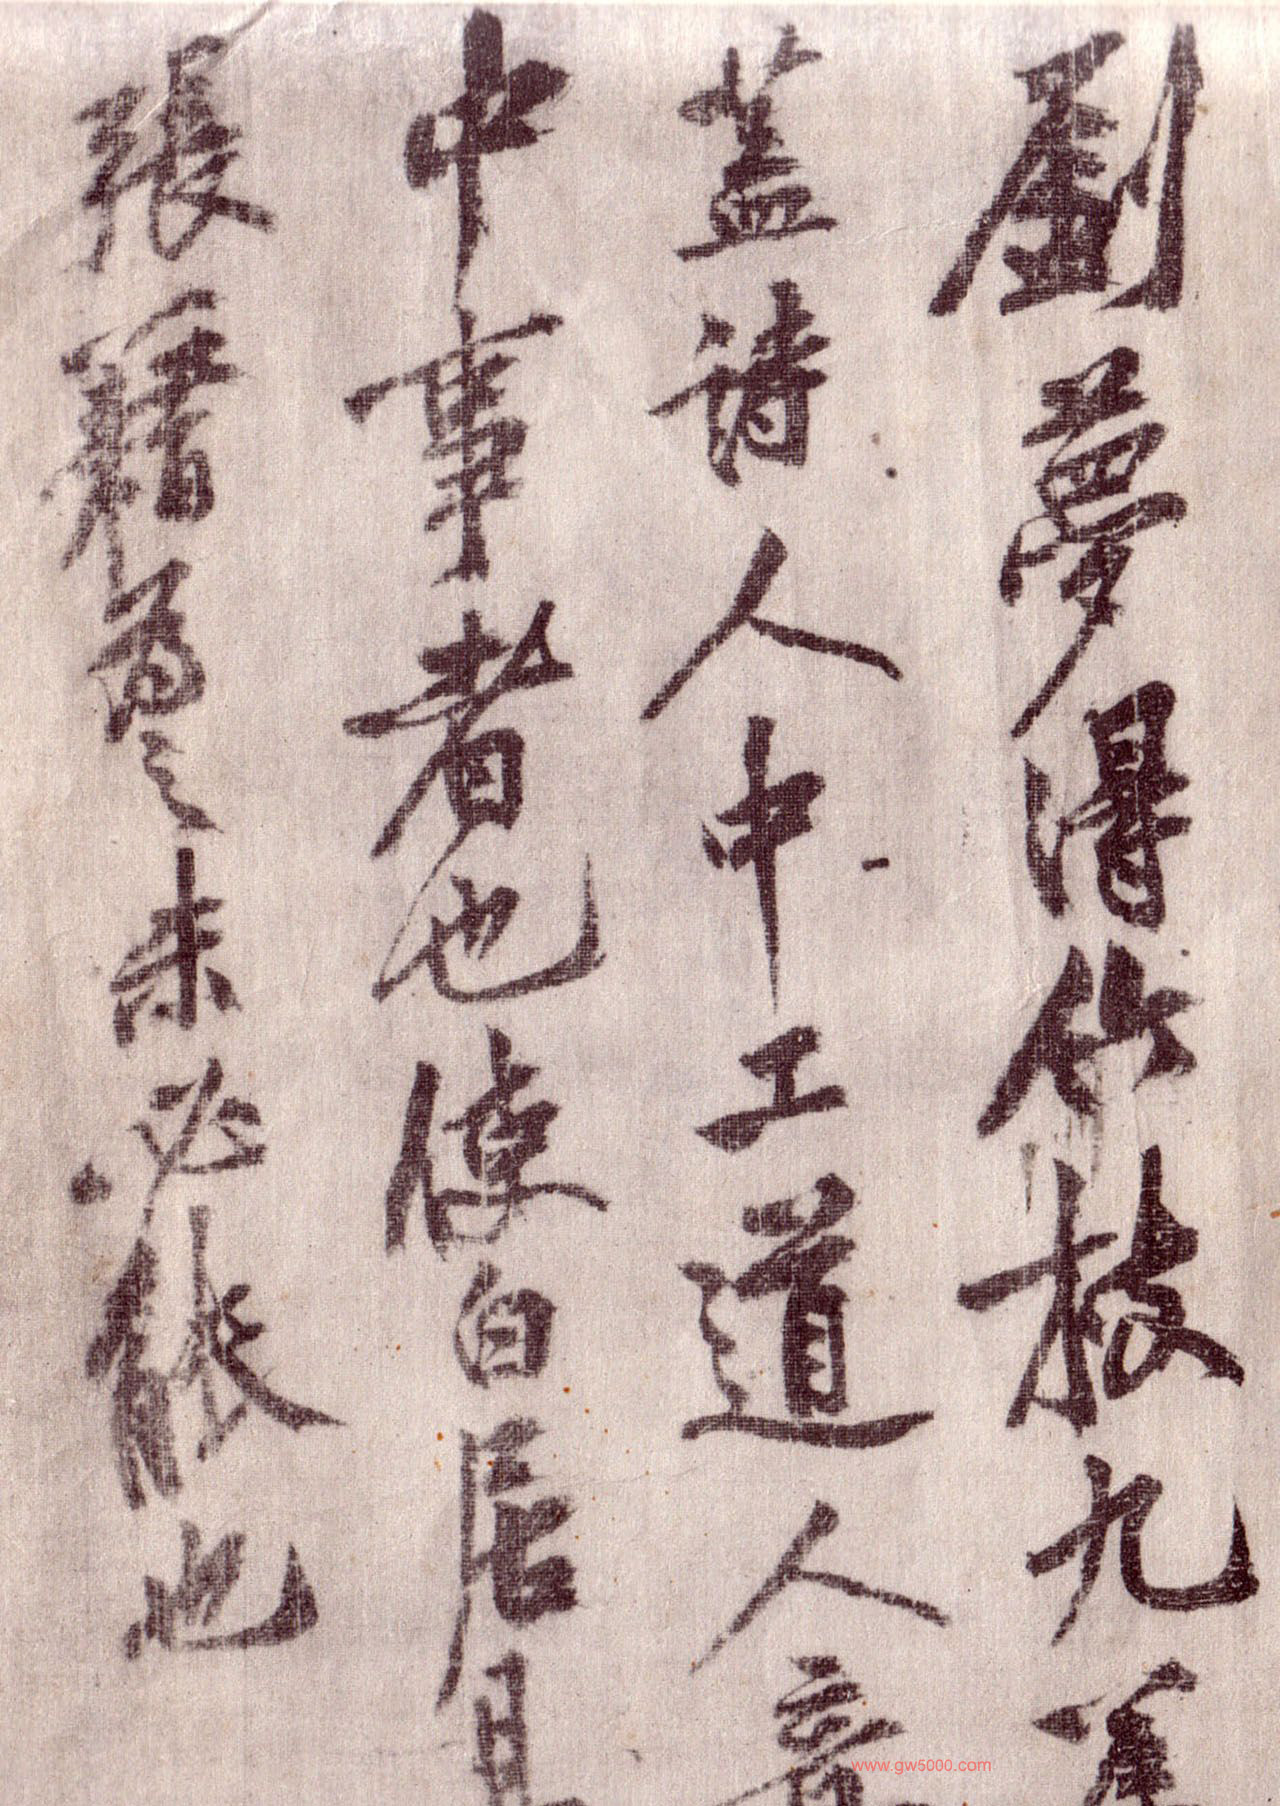 劉夢得竹枝九篇
蓋詩人中工道人意
中事者也使白居易
張籍為之未必能也
www.gw5000.com